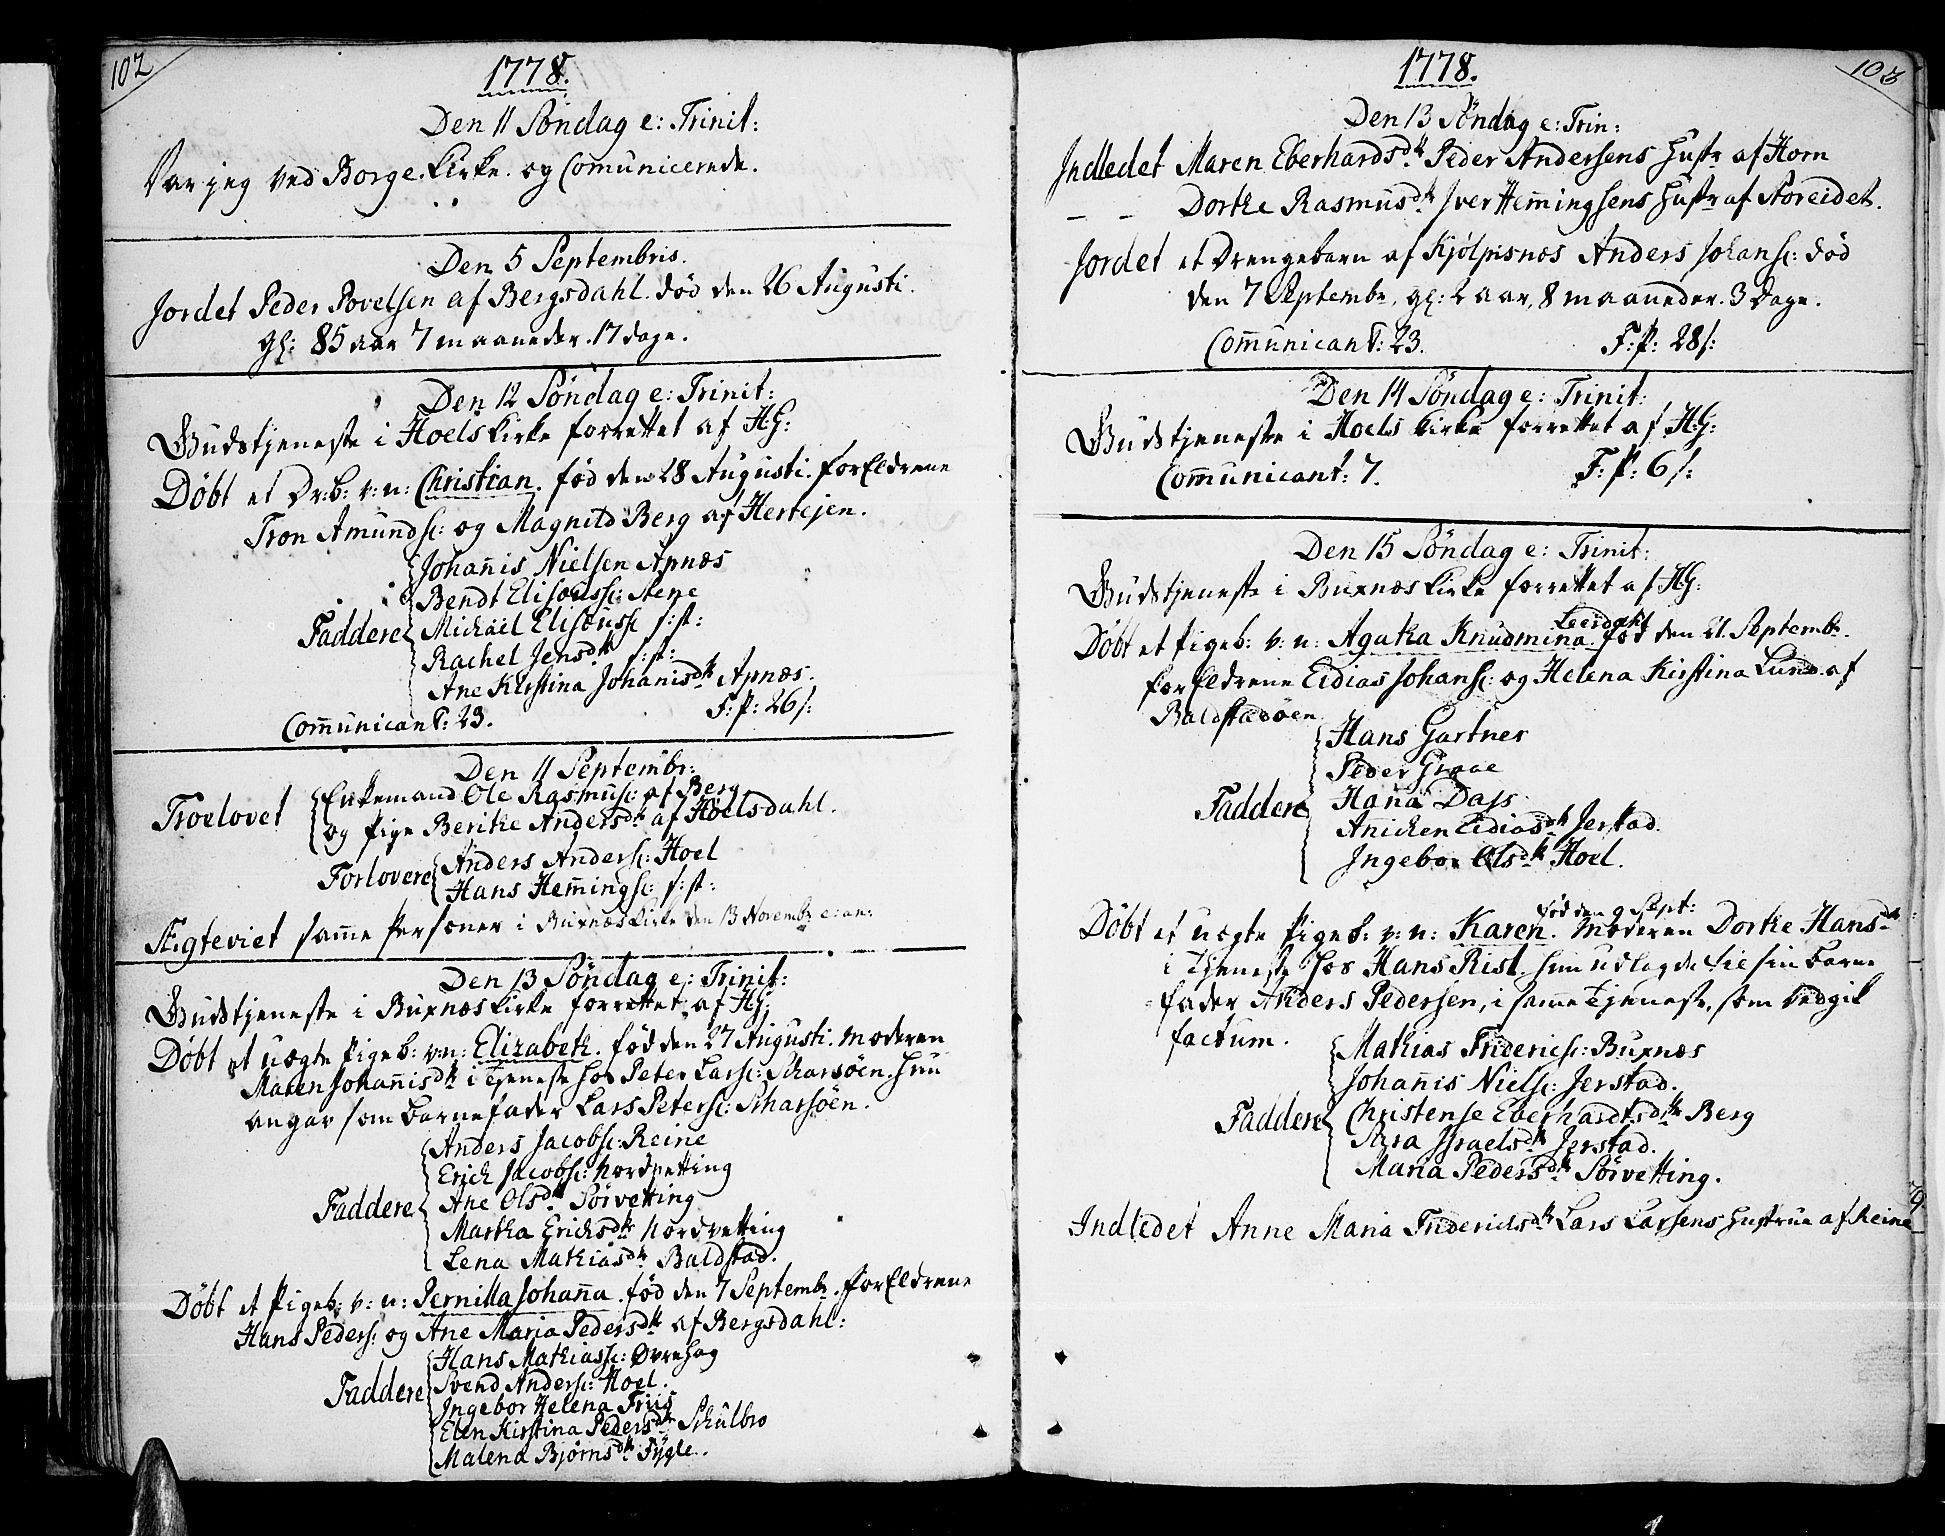 102
1778.
Den 11 Søndag e: Trinit:
Var jeg ved Borge Kirke og Comunicerede.
Den 5 Septembris.
Jordet Peder Povelsen af Bergsdahl. død den 26 Augusti.
gl: 85 aar 7 maaneder. 17 dage.
Den 12 Søndag e: Trinit:
Gudstjeneste i Hoels Kirke forrettet af HG:
Døbt et Dr:b: v: n: Christian. fød den 28 Augusti. Forældrene
Tron Amunds: og Magnild Berg af Hertejen.
Johañis Nielsen Apnæs
Bendt Elisæuss: Stene
Faddere Michäel Elisæuss: s:st:
Rachel Jensdtr s:st:
Ane Kirstina Johanisdtr Apnæs.
Com̃unicant: 23. F:P: 26 s:
Den 11 Septembr:
Troelovet Enkemand Ole Rasmus: af Berg
og Pige Berithe Andersdtr af Hoelsdahl.
Forlovere Anders Anders: Hoel
Hans Hem̃ings: s:st:
Ægteviet sam̃e Personer i Buxnæs Kirke den 13 Novembr e: an:
Den 13 Søndag e: Trinit:
Gudstjeneste i Buxnæs Kirke forrettet af HG:
Døbt et uægte Pigeb: v:n: Elizabeth. fød den 27 Augusti. Moderen
Maren Johañisdtr i Tjeneste hos Peter Lars: Scharsøen. hun
angav som Barnefader Lars Peters: Scharsøen.
Anders Jacobs: Reine
Erich Jacobs: Nordvetting
Faddere Ane Olsdtr Sørvetting
Martha Erichsdtr Nordvetting
Lena Mathiasdtr Baldstad.
Døbt et Pigeb: v: n: Pernilla Johaña. fød den 7 Septembr. Forældrene
Hans Peders: og Ane Maria Pedersdtr af Bergsdahl:
Hans Mathiass: Øvrehag
Faddere Svend Anders: Hoel.
Ingebor Helena Friis
Elen Kirstina Pedersdtr Schulbro
Malena Bjørnsdtr Fygle.
1778.
103
Den 13 Søndag e: Trin:
Indledet Maren Eberhardsdtr Peder Andersens Hustr af Horn
– – Dorthe Rasmusdtr Iver Hem̃ingsens Hustr af Storeidet.
Jordet et Drengebarn af Kjølpisnæs Anders Johans: død
den 7 Septembr. gl: 2 aar, 8 maaneder. 3 Dage.
Com̃unicant: 23. F:P: 28 s:
Den 14 Søndag e: Trinit:
Gudstjeneste i Hoels Kirke forrettet af HG:
Com̃unicant: 7. F: P: 6 s:
Den 15 Søndag e: Trinit:
Gudstjeneste i Buxnæs Kirke forrettet af HG:
Døbt et Pigeb: v: n: Agatha Knudmina Leerdahl fød den 21 Septembr.
Forældrene Eidias Johans: og Helena Kirstina Lund af
Baldstadøen
Hans Gartner
Peder Graae
Faddere Haña Dass
Añichen Eidiasdtr Jerstad.
Ingebor Olsdtr Hoel.
fød den 9 Sept:
Døbt et uægte Pigeb: v: n: Karen. Moderen Dorthe Hansdtr
i Tjeneste hos Hans Rist. hun udlagde til sin Barne
fader Anders Pedersen, i sam̃e Tjeneste, som vedgik
factum.
Mathias Friderics: Buxnæs
Johañis Niels: Jerstad.
Faddere Christense Eberhardtsdtr Berg
Sara Israelsdtr Jerstad.
Maria Pedersdtr Sørvetting.
Indledet Anne Maria Friderichsdtr Lars Larsens Hustrue af Reine